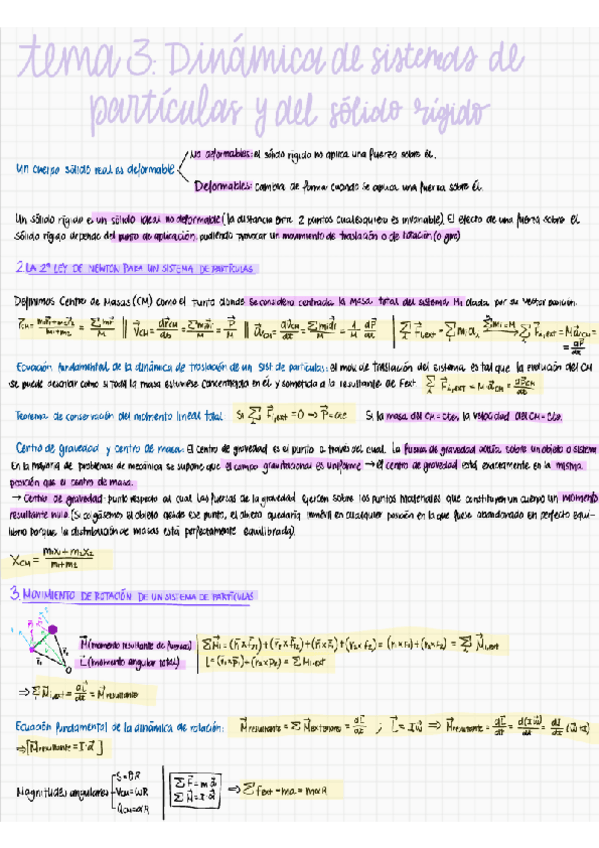 tema 3: Dinámica de sistemas de
partículas y del sólido rígido
No deformables: el sólido rígido no aplica una fuerza sobre él.
Un cuerpo sólido real es deformable
Deformables: cambia de forma cuando se aplica una fuerza sobre él.
Un sólido rígido es un sólido ideal no deformable (la distancia entre 2 puntos cualesquiera es invariable). El efecto de una fuerza sobre el
sólido rígido depende del punto de aplicación, pudiendo provocar un movimiento de traslación o de rotación (o giro)
2. LA 2ª LEY DE NEWTON PARA UN SISTEMA DE PARTÍCULAS
Definimos Centro de Masas (CM) como el punto donde se considera centrada la masa total del sistema, M; dada por su vector posición.
Ecuación fundamental de la dinámica de traslación de un sist de partículas: el mov. de traslación del sistema es tal que la evolución del CM
se puede describir como si toda la masa estuviese concentrada en él y sometida a la resultante de Fext.
Teorema de conservación del momento lineal total: Si la masa del CM = cte, la velocidad del CM = cte.
Centro de gravedad y centro de masa: El centro de gravedad es el punto a través del cual la fuerza de gravedad actúa sobre un objeto o sistema
En la mayoría de problemas de mecánica se supone que el campo gravitacional es uniforme → el centro de gravedad está exactamente en la misma
posición que el centro de masa.
→ Centro de gravedad: punto respecto al cual las fuerzas de la gravedad ejercen sobre los puntos materiales que constituyen un cuerpo un momento
resultante nulo (Si colgásemos el objeto desde ese punto, el objeto quedaría inmóvil en cualquier posición en la que fuese abandonado en perfecto equi-
librio porque la distribución de masas está perfectamente equilibrada).
X_CM = (m₁x₁ + m₂x₂)/(m₁+m₂)
3. MOVIMIENTO DE ROTACIÓN DE UN SISTEMA DE PARTÍCULAS
M (momento resultante de fuerzas)
L (momento angular total)
Ecuación fundamental de la dinámica de rotación:
→ [M resultante = I·α]
Magnitudes angulares
S = θR
V_CM = ωR
a_CM = αR
ΣF = ma
ΣM = I·α
⇒ Σ Fext = ma = mαR